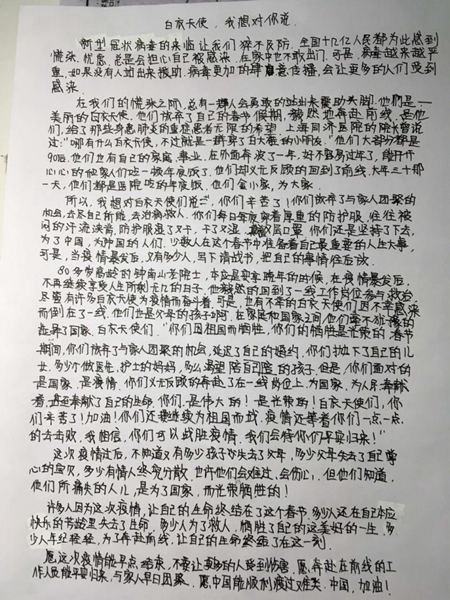 白衣天使，我想对你说
新型冠状病毒的来临让我们猝不及防，全国十几亿人民都为此感到
慌张、忧愁，总是会担心自己被感染，在家中也不敢出门，可是，病毒越来越严
重，如果没有人站出来援助，病毒更加的肆意传播，会让更多的人们受到
感染。
在我们的慌张之际，总有一群人会勇敢的站出来要助头脚，他們是一
美丽的白衣天使，他们放弃了自己的春节假期，毅然地奔赴前线，是他
们，给了那些身患肺炎的重症患者无限的希望。上海同济医院的院长曾说
过："哪有什么白衣天使，不过就是一群穿了白大褂的小朋友。"他们大部分都是
90后，他们也有自己的家庭、事业，在外面奔波了一年，好不容易过年了，能开开
心心的他家人们吃一顿年夜饭了，他们却义无反顾的回到了前线，大年三十那
一天，他们都是医院吃的年夜饭，他们舍小家，为大家。
所以，我想对白衣天使们说："你们，辛苦了！你们放弃了与家人团聚的
机会，去尽自己所能，去治病救人，你们每日每夜穿着厚重的防护服，往往被
闷的汗流浃背，防护服湿了又干，干了又湿，
为了中国，为中国的人们，少数人在这个春节中准备着自己最重要的人生大事，
可是，当疫情暴发后，又有多少人，写下请战书，把自己的事情往后放。
80多岁高龄的钟南山老院士，本应是安享晚年的时候，在疫情暴发后，
不再继续享受人生所剩无几的日子，他毅然的回到了一线工作岗位参与救治，
尽管有许多白衣天使为疫情而奋斗着，可是，也有不幸的白衣天使们因不幸感染
而倒在了一线，他们也是父母的孩子啊，在家庭和国家之间，他们毫不犹豫的
选择了国家，白衣天使们，"你们因祖国而牺牲，你们的牺牲是光荣的，春节
期间，你们放弃了与家人团聚的机会，延迟了自己的婚约，你们抛下了自己的儿
女，多少个做医生，护士的妈妈，多么渴望陪自己陪的孩子，但是，你们面对的
是国家，是疫情，你们义无反顾的奔赴了在一线岗位上，为国家，为人民奉献
着，甚至奉献了自己的生命，你们，是伟大的！是光荣的！白衣天使们，你
们辛苦了！加油！你们还要继续为祖国而战，疫情还等着你们一点一点
的去击败，我相信，你们可以战胜疫情，我们会待你们平安归来！"
这次疫情过后，不知道又有多少孩子少失去了父母，多少父母失去了自己
心的宝贝，多少有情人终究分散，也许他们会难过，会伤心，但他们知道，
使们所痛失的人儿，是为了国家，而光荣牺牲的！
许多人因为这次疫情，让自己的生命终结在了这个春节，多少人还在自己本应
快乐的年龄里失去了生命，多少人为了救人，牺牲了自己的这美好的一生，多
少人年纪轻轻，为了奔赴前线，让自己的生命终结了在这一刻。
愿这次疫情能早点结束，不要让更多的人受到伤害，愿奔赴在前线的工
作人员能平安归来，与家人早日团聚，愿中国能顺利渡过难关，中国，加油！